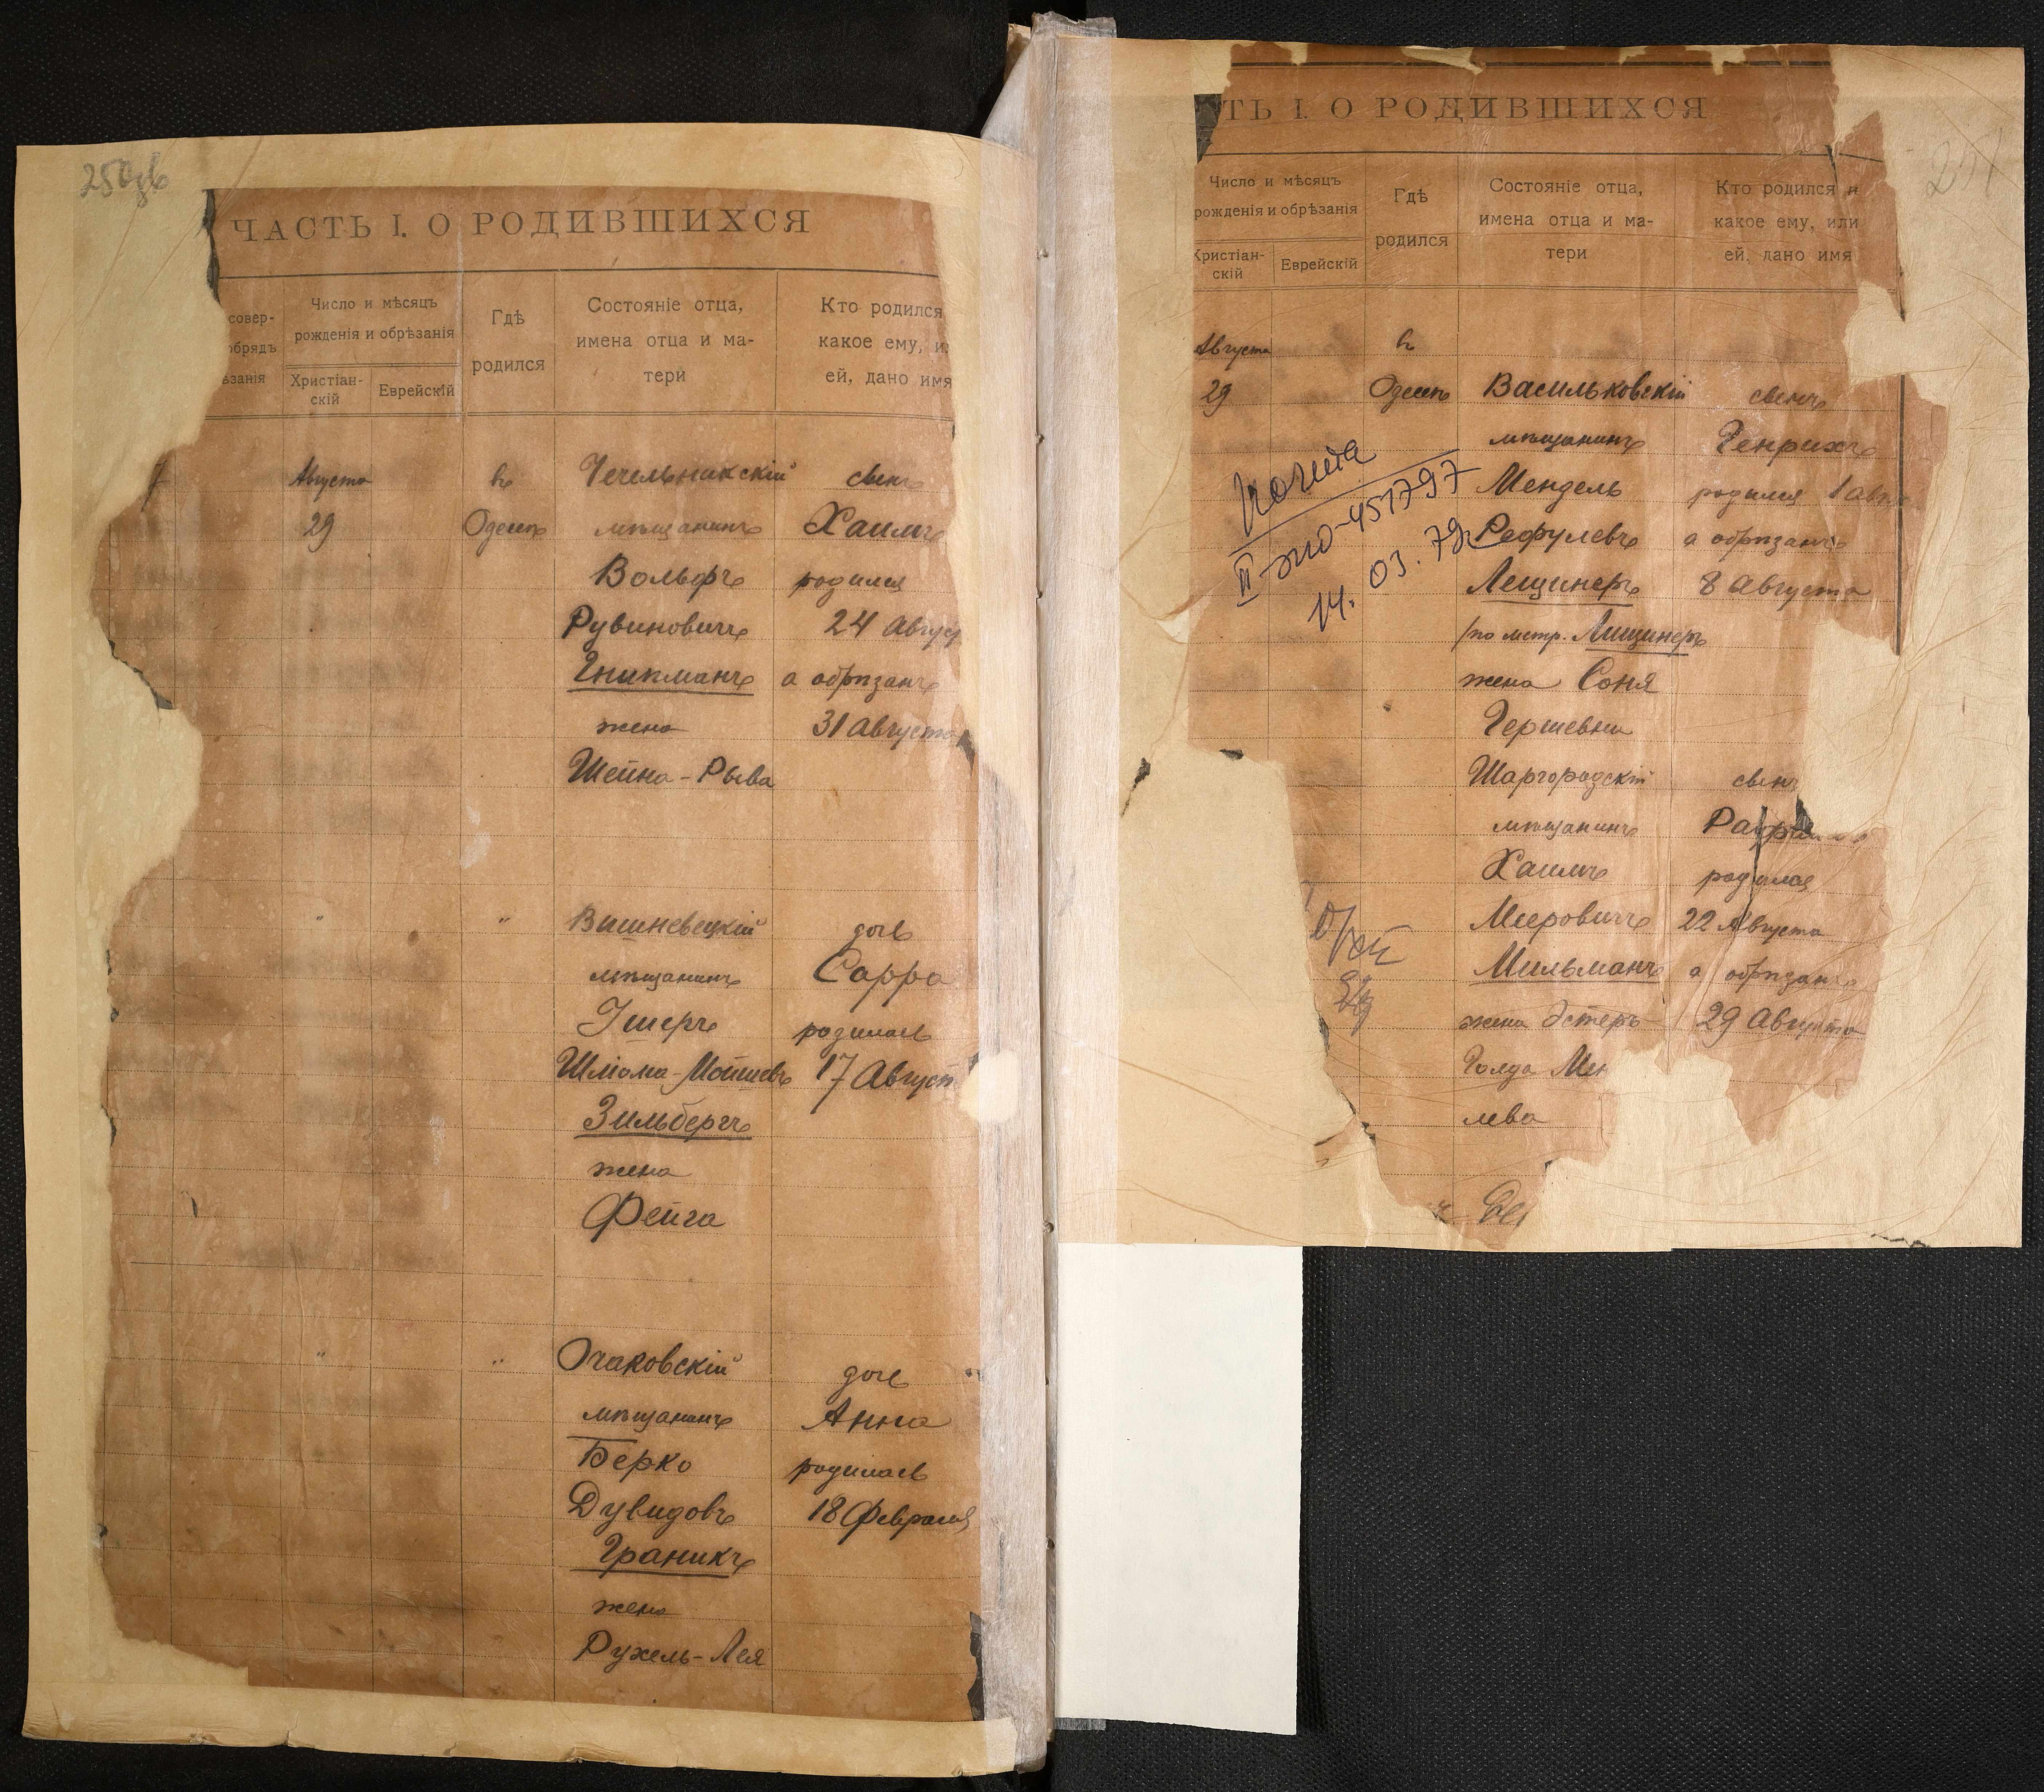 250об
ЧАСТЬ I. О РОДИВШИХСЯ
совер-
обрядъ
ѣзанія
Число и мѣсяцъ
рожденія и обрѣзанія
Христіан-
скій
Еврейскій
Гдѣ
родился
Состояніе отца,
имена отца и ма-
тери
Кто родился
какое ему, и
ей, дано имя
Августа
29
въ
Одессѣ
Чечельникскій
мѣщанинъ
Вольфъ
Рувиновичъ
Гнипманъ
жена
Шейна-Рыва
сынъ
Хаимъ
родился
24 Авгус
а обрѣзанъ
31 Августа
"
"
Вишневецкій
мѣщанинъ
Ушеръ
Шліома-Мошиевъ
Зильбергъ
жена
Фейга
дочь
Сарра
родилась
17 Август
"
"
Очаковскій
мѣщанинъ
Берко
Дувидовъ
Граникъ
жена
Рухель-Лея
дочь
Анна
родилась
18 Февраля
251
ТЬ I. О РОДИВШИХСЯ
Число и мѣсяцъ
рожденія и обрѣзанія
Христіан-
скій
Еврейскій
Гдѣ
родился
Состояніе отца,
имена отца и ма-
тери
Кто родился и
какое ему, или
ей, дано имя
Августа
29
въ
Одессѣ
Васильковскій
мѣщанинъ
Мендель
Рефулевъ
Лещинеръ
/по метр. Лищинеръ
жена Соня
Гершевна
сынъ
Генрихъ
родился 1 Авг
а обрѣзанъ
8 Августа
II-ЖО-451797
14.03.79г.
Шаргородскій
мѣщанинъ
Хаимъ
Мееровичъ
Мильманъ
жена Эстеръ-
Голда Мен
лева
сынъ
родился
22 Августа
а обрѣзанъ
29 Августа